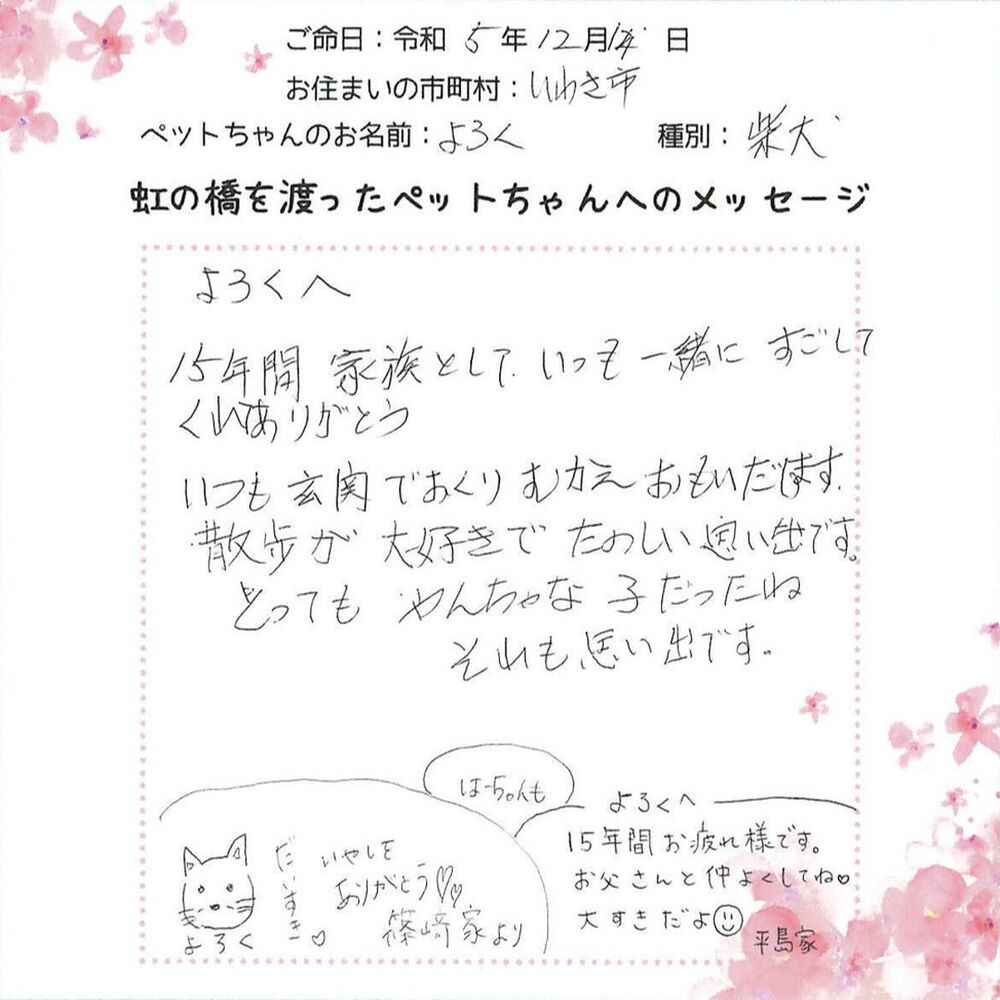 ご命日：令和 5年12月 日
お住まいの市町村：いわき市
ペットちゃんのお名前：よろく 種別：柴犬
虹の橋を渡ったペットちゃんへのメッセージ
よろくへ
15年間 家族として いつも 一緒に すごして
くれてありがとう
いつも 玄関でおくり むかえ おもいだします.
散歩が 大好きで たのしい 思い出です。
とっても やんちゃな 子だったね
それも 思い出です。
はーちゃんも
よろくへ
15年間お疲れ様です。
お父さんと仲よくしてね♡
大すきだよ☺
平島家
だいすき♡
いやしを
ありがとう♡♡
篠崎家より
よろく